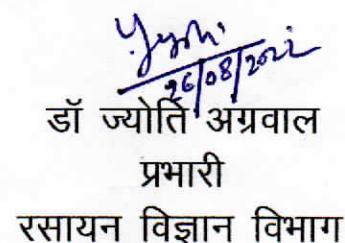 Jyoti
26/08/2022
डॉ ज्योति अग्रवाल
प्रभारी
रसायन विज्ञान विभाग